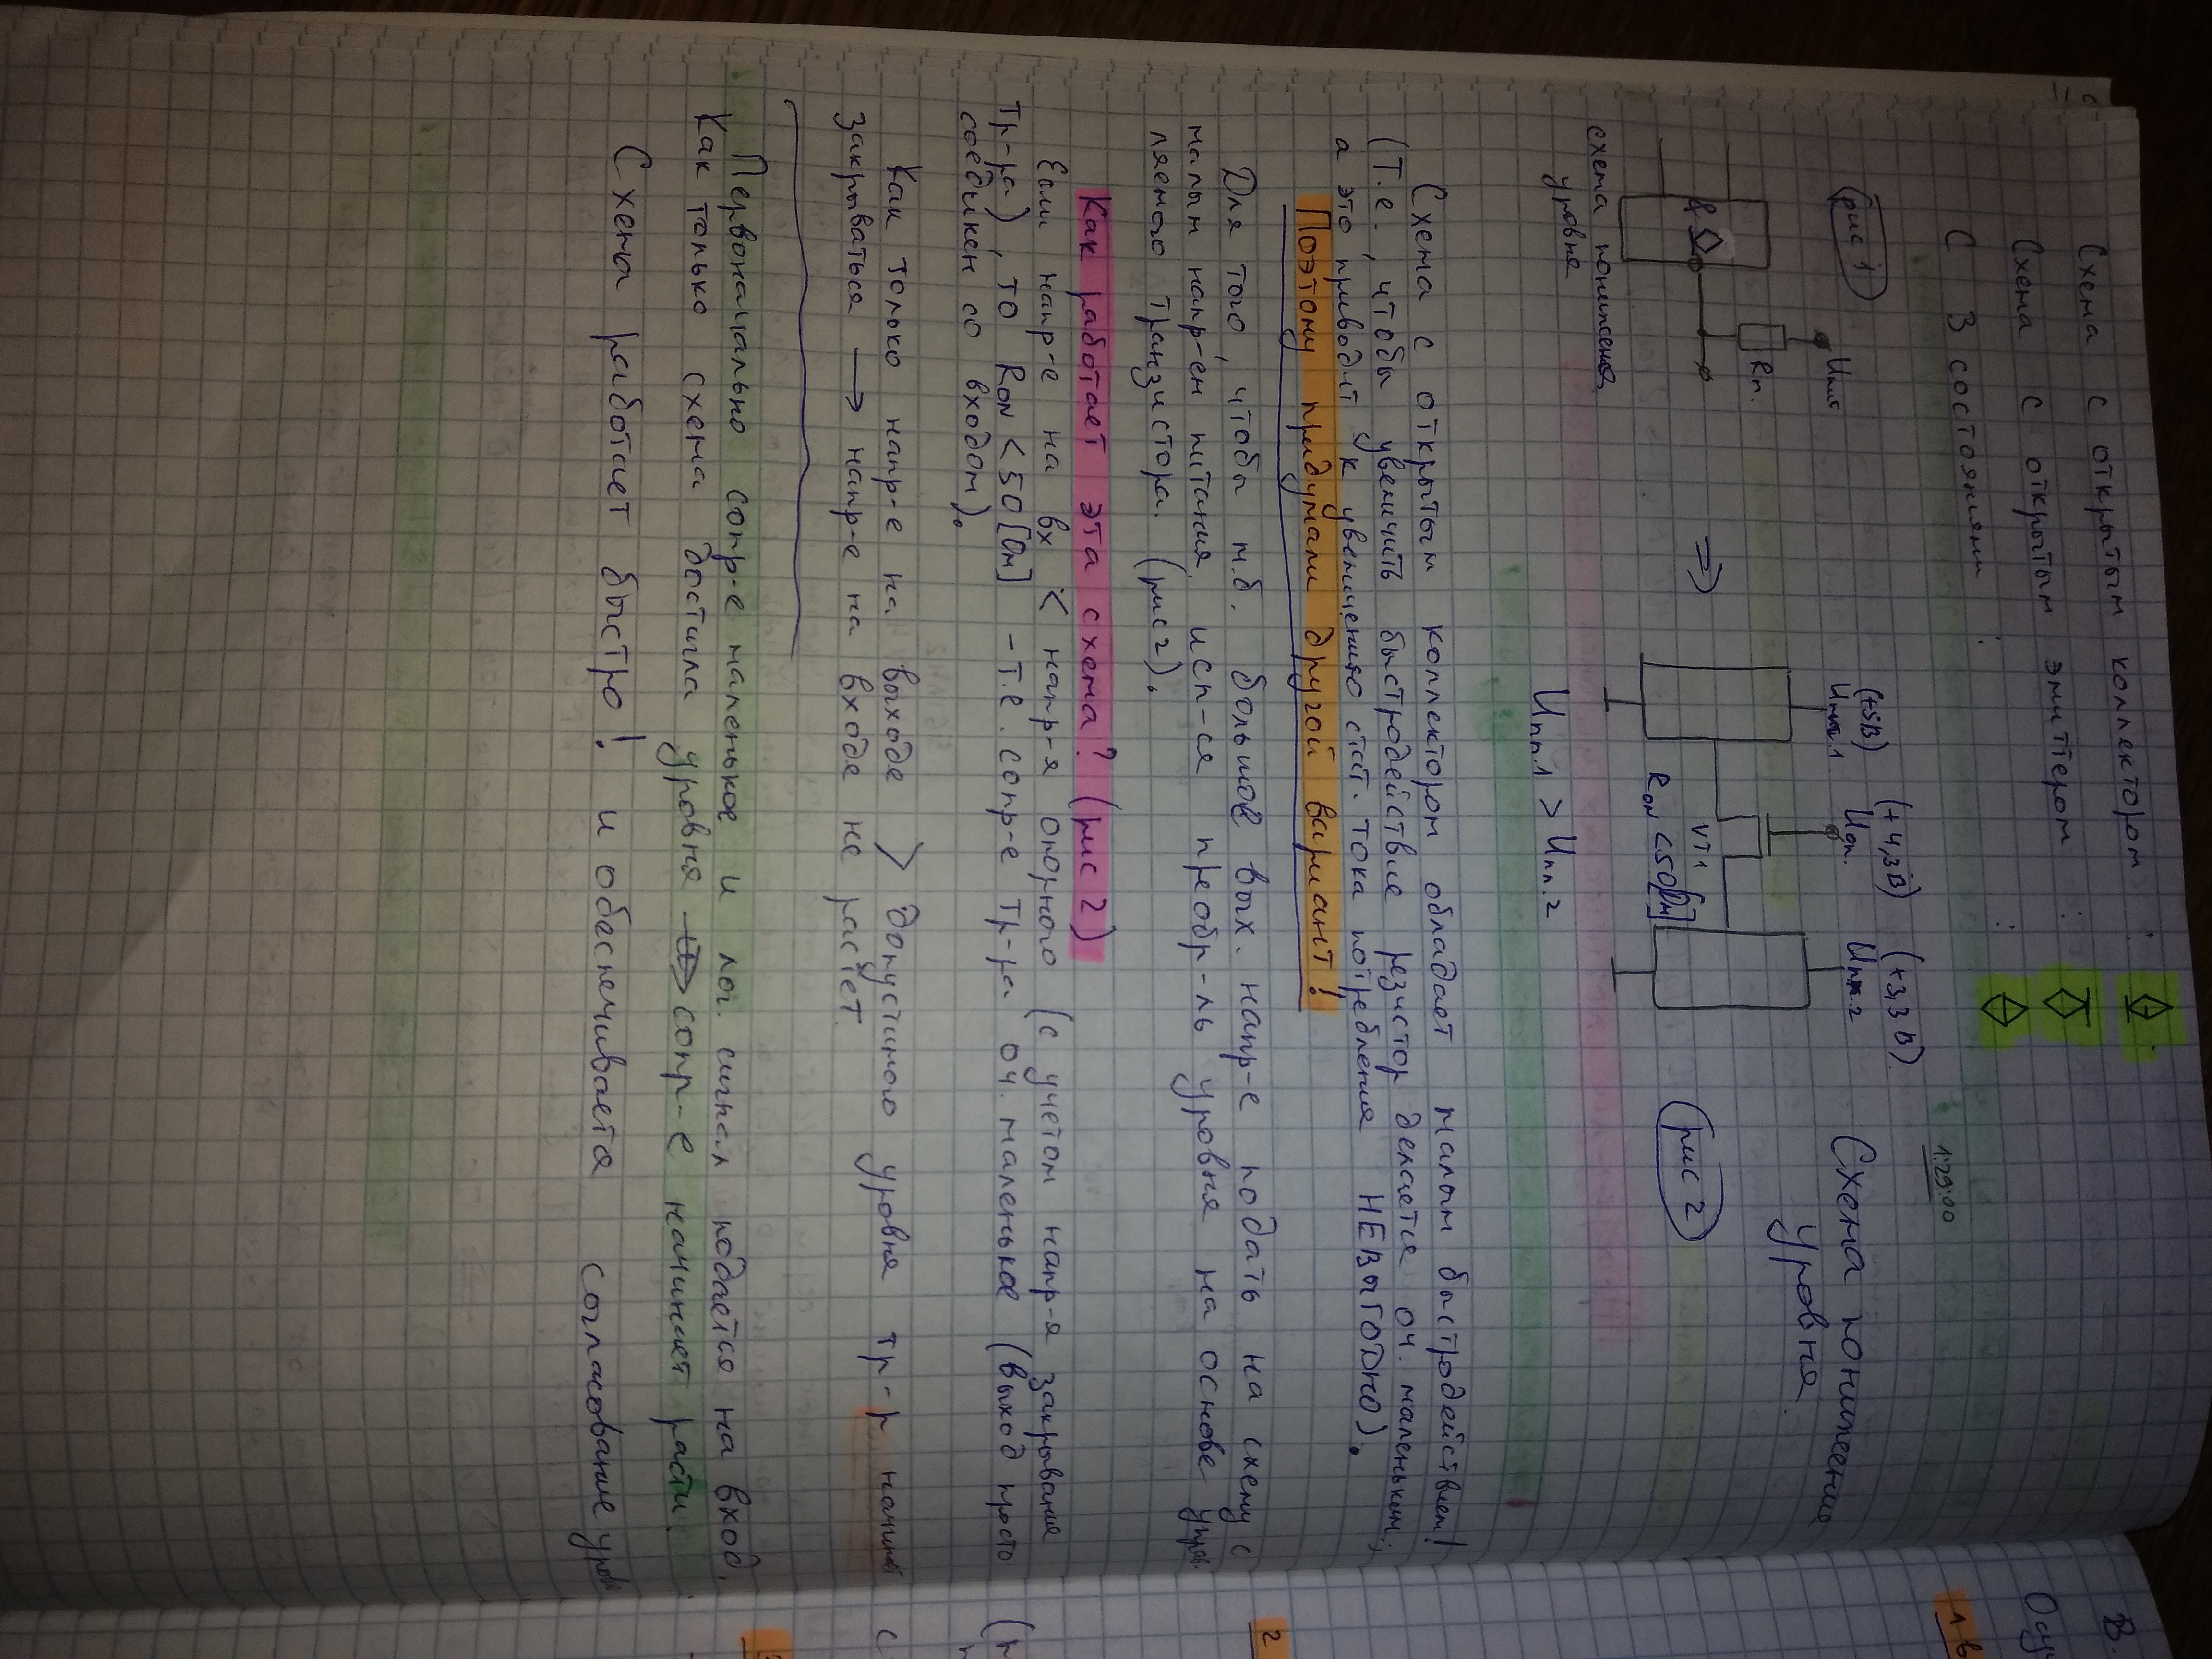 Схема с открытым коллектором :
Схема с открытым эмиттером :
С 3 состояниям :
1:29:00
рис 1
Uпит
Rп.
&
схема понижения
уровня
⇒
(+5В)
Uпит.1
(+4,3В)
Uоп.
(+3,3В)
Uпит.2
VT1
RON <50[Ом]
Uпп.1 > Uпп.2
Схема понижение
уровня.
рис 2
Схема с открытым коллектором обладает малым быстродействием!
(Т.е., чтобы увеличить быстродействие резистор делается оч. маленьким,
а это приводит к увеличению стат. тока потребления НЕВЫГОДНО).
Поэтому придумали другой вариант!
Для того, чтобы м.б. большое вых. напр-е подать на схему с
малым напр-ем питания, исп-ся преобр-ль уровня на основе управ-
ляемого транзистора. (рис 2).
Как работает эта схема? (рис 2)
Если напр-е на вх < напр-я опорного (с учетом напр-я закрывания
тр-ра), то RON < 50 [Ом] - т.е. сопр-е тр-ра оч. маленькое (выход просто
соединен со входом).
Как только напр-е на выходе > допустимого уровня тр-р
закрываться → напр-е на входе не растёт.
Первоначально сопр-е маленькое и лог. сигнал подается на вход.
Как только схема достигла уровня → сопр-е начинает расти.
Схема работает быстро! и обеспечивается согласование уровн
2